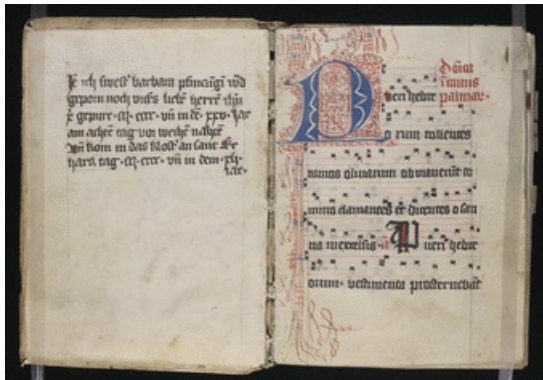 ich swest barbara
geporn noch herre ihu
gepurt cccc vn in de xxv Jar
am achte tag vor
vn kom in das klost an sant Er
hartz tag cccc vn in dem xlj
iar
in ramis
palmar
P ueri hebre
o rum tollentes
ramos oliuarum obuiauerut do
mino clamantes et dicentes o san
na in excelsis a Pueri hebre
orum vestimenta prosternebat